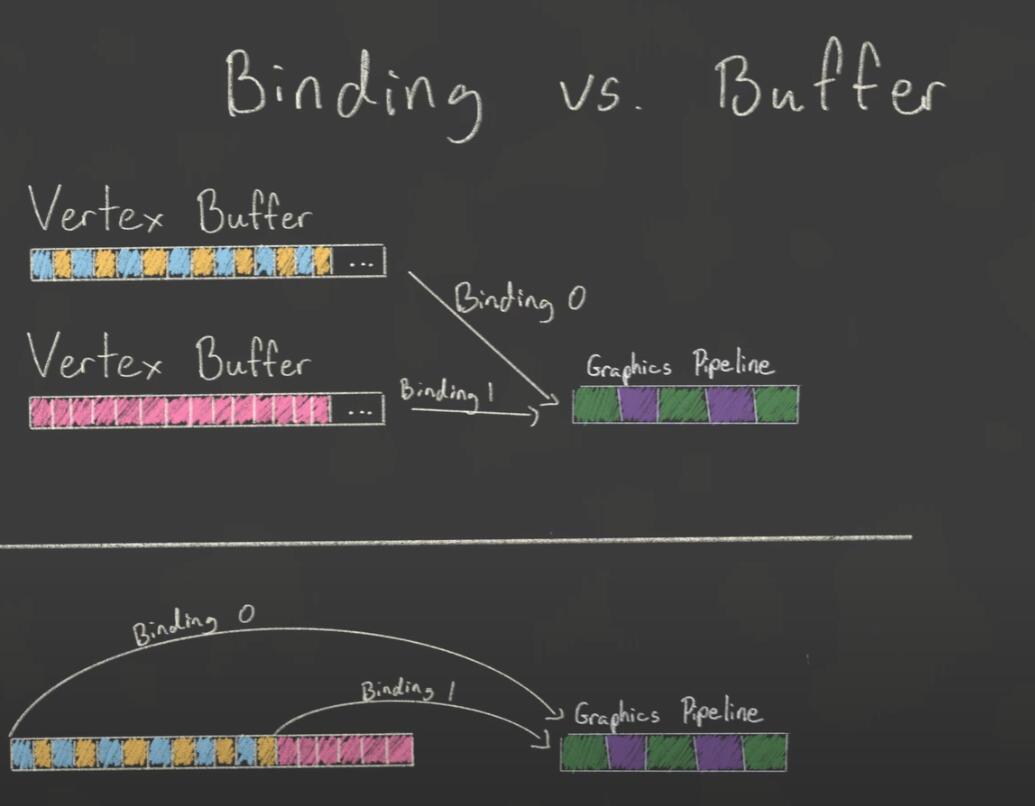 Binding vs. Buffer
Vertex Buffer
...
Binding 0
Vertex Buffer
...
Binding 1
Graphics Pipeline
Binding 0
Binding 1
Graphics Pipeline